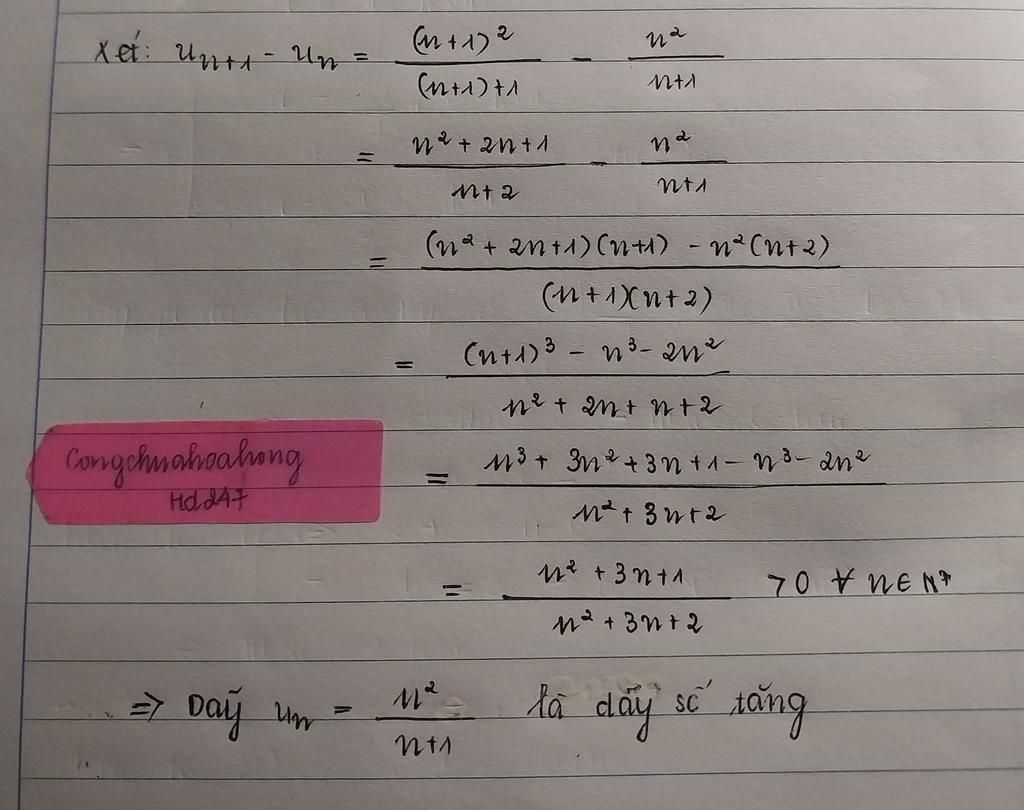 Xét: uₙ₊₁ - uₙ = (n+1)²/((n+1)+1) - n²/(n+1)
= (n² + 2n+1)/(n+2) - n²/(n+1)
= ((n² + 2n+1)(n+1) - n²(n+2))/((n+1)(n+2))
= ((n+1)³ - n³ - 2n²)/(n² + 2n + n + 2)
Congchuahoahong
Hd247
= (n³ + 3n² + 3n + 1 - n³ - 2n²)/(n² + 3n + 2)
= (n² + 3n + 1)/(n² + 3n + 2) > 0 ∀ n ∈ N*
=> Dãy uₙ = n²/(n+1) là dãy số tăng